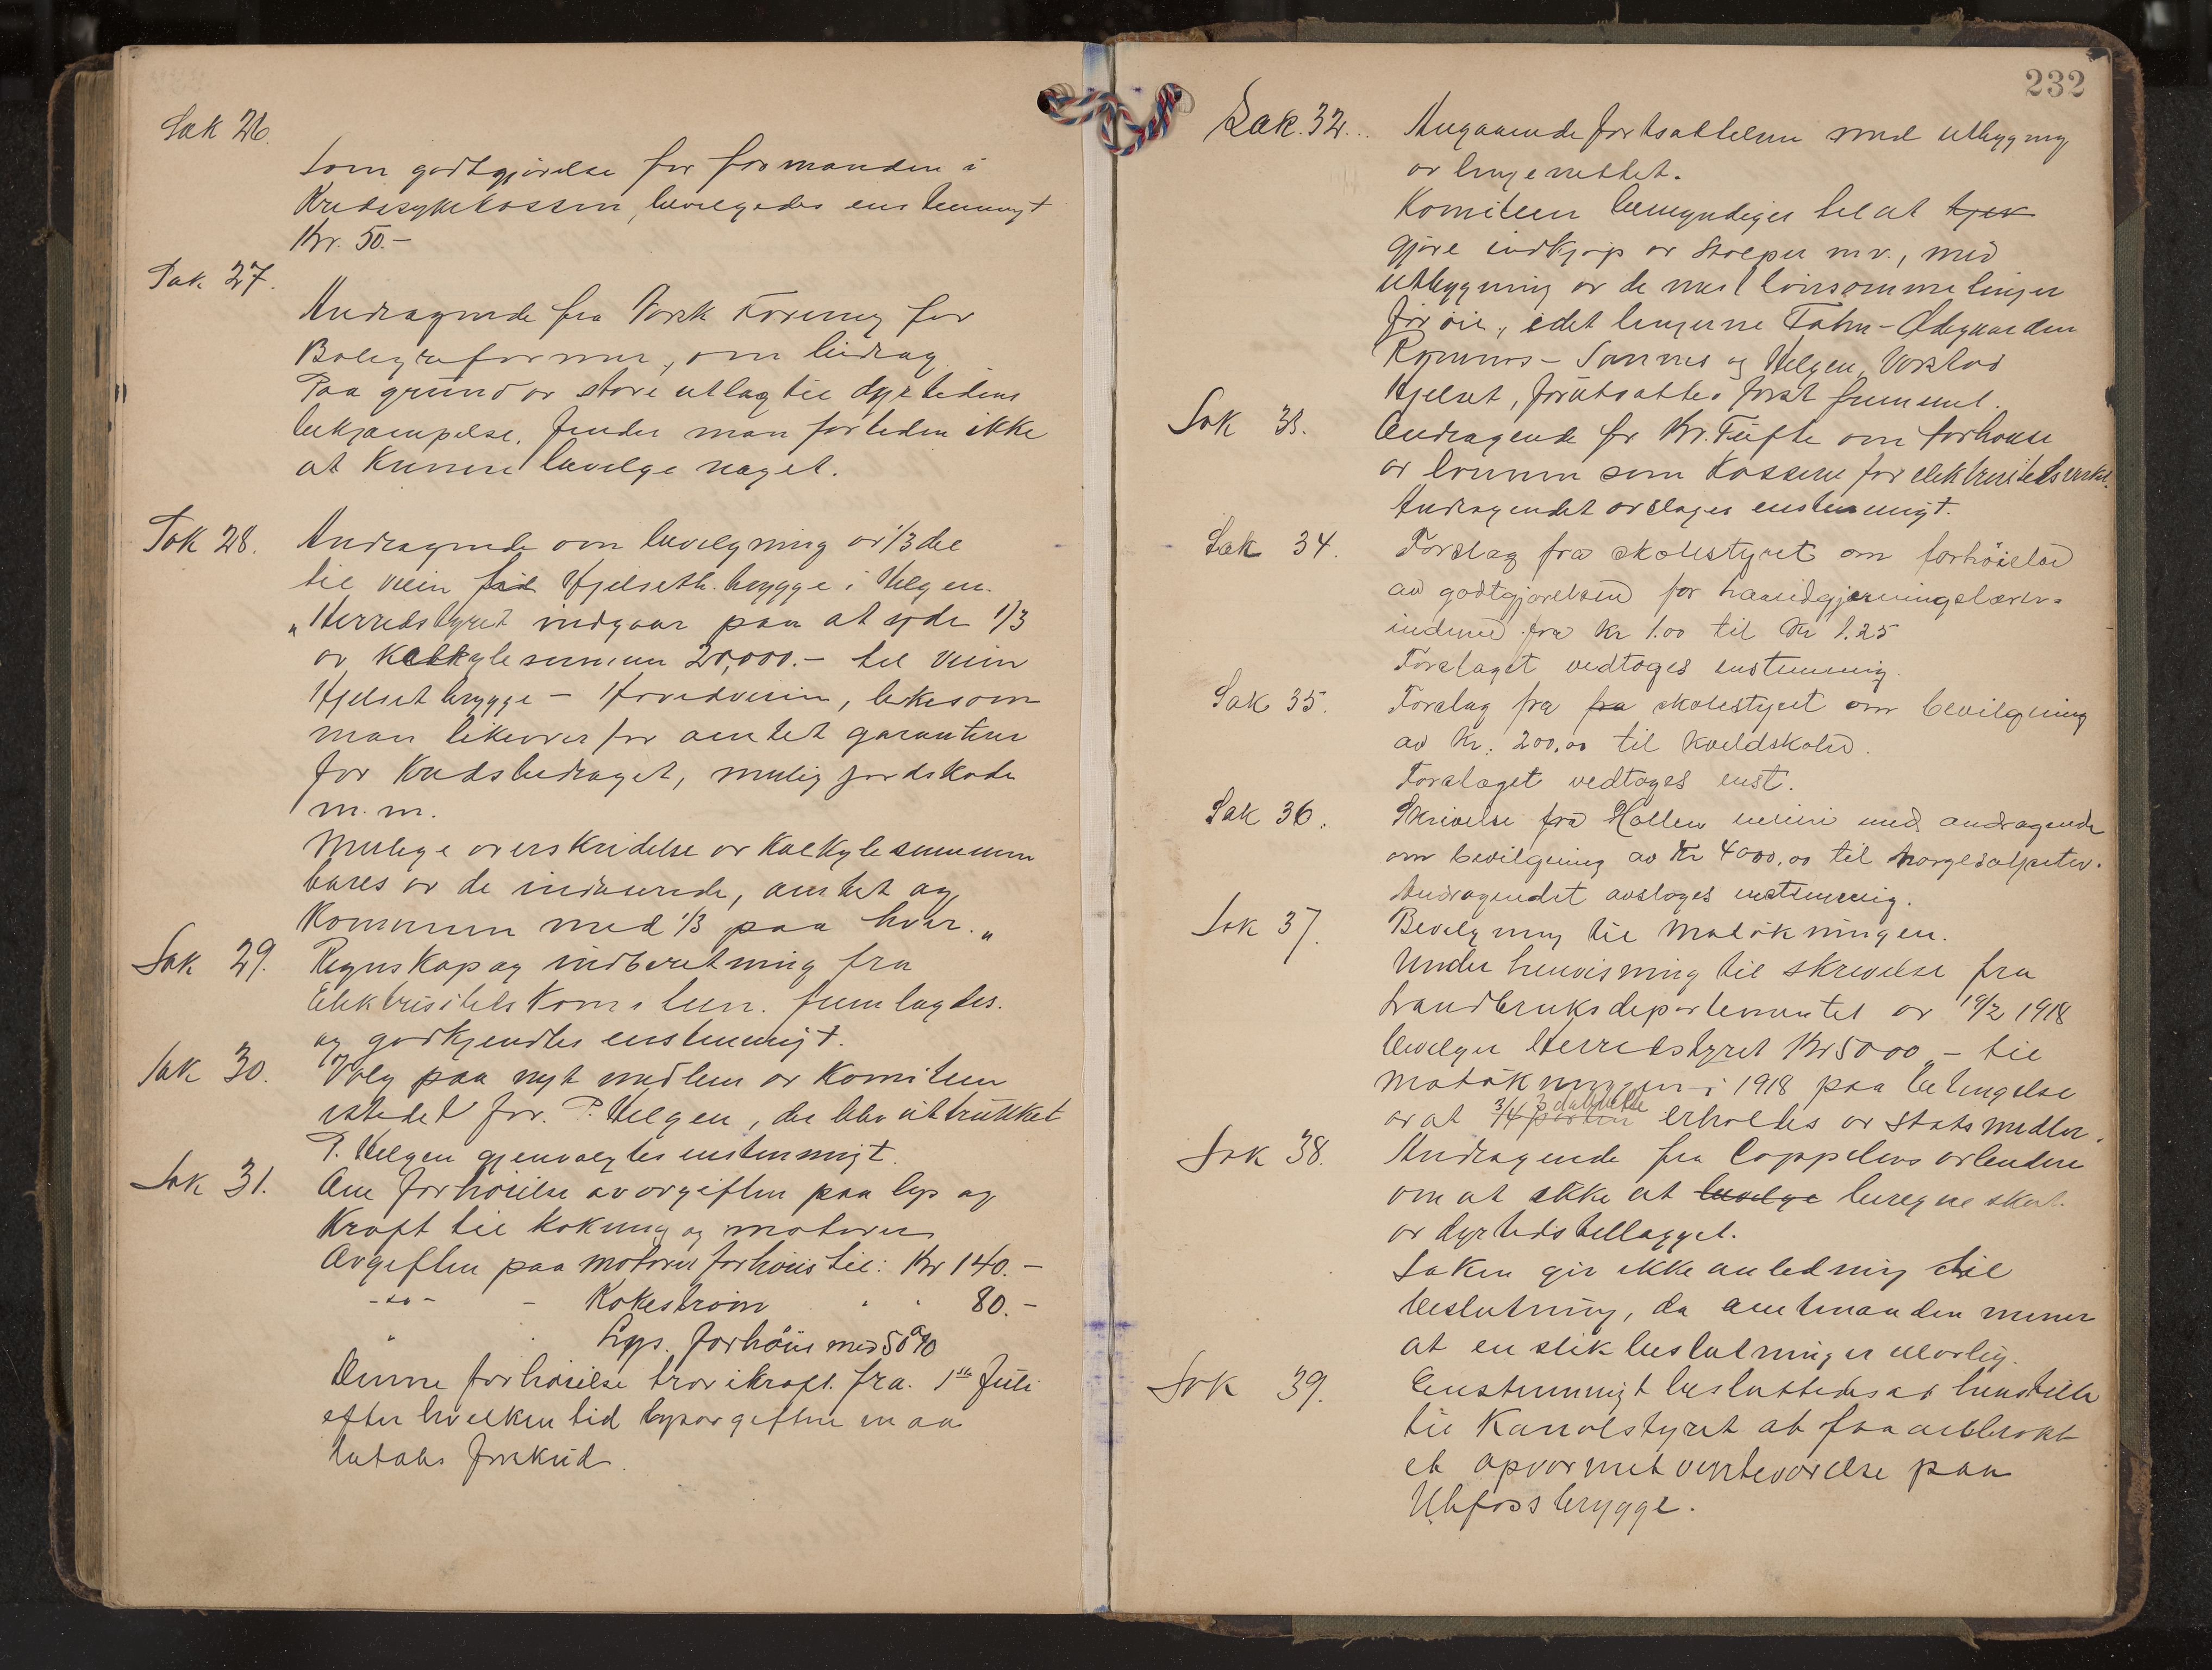 Sak 26.
Som godtgjørelse for formanden i
Kredssykekassen, bevilgedes enstemmigt
Kr. 50.-
Sak 27.
Andragende fra Norsk Forening for
Boligreformer, om bidrag
Paa grund av store utlag til dyrtidens
bekjæmpelse, finder man for tiden ikke
at kunne bevilge noget.
Sak 28. Andragende om bevilgning av 1/3 del
til veien Hjelseth brygge i Helgen.
"Herredstyret indgaar paa at yde 1/3
av kalkylesummen 20,000.- til veien
Hjelset brygge - Hovedveien, likesom
man likeoverfor amtet garanterer
for kredsbidraget, mulig jordskade
m.m.
Mulige overskridelse av kalkylesummen
bæres av de interesserede, amtet og
Kommunen med 1/3 paa hver."
Sak 29. Regnskap og indberetning fra
Elektrisitetskomiteen fremlagdes.
og godkjendtes enstemmigt.
Sak 30. Valg paa nyt medlem av komiteen
istedet for P. Helgen, der blev uttrukket
P. Helgen gjenvalgtes enstemmigt.
Sak 31. Om forhøielse av avgiften paa lys og
Kraft til kokning og motorer
Avgiften paa motorer forhøies til: Kr 140.-
-do- - Kokestrøm " " 80.-
" " Lys forhøies med 50%
Denne forhøielse trær ikraft fra 1ste Juli
efter hvilken tid lysavgiften maa
betales forskud.
232
Sak. 32. Angaaende fortsættelsen med utbygning
av linjenettet.
Komiteen bemyndiges til at
gjøre indkjøp av stolper m.v., med
utbygning av de mest lønsomme linjer
for øie, idet linjerne Tahn-Ødegaarden
Romnes - Sannes og Helgen, Vorstad
Hjelset, forutsættes først fremmet.
Sak 33. Andragende fr Kr. Tufte om forhøielse
av lønnen som kasserer for elektrisitetsverket.
Andragendet avslages enstemmigt.
Sak 34. Forslag fra skolestyret om forhøielse
av godtgjørelsen for haandgjerningslærer-
inderne fra Kr 1.00 til Kr 1.25
Forslaget vedtoges enstemmig.
Sak 35. Forslag fra fra skolestyret om bevilgning
av Kr. 200,00 til kveldskole.
Forslaget vedtoges enst.
Sak 36. Skrivelse fra Hollen meieri med andragende
om bevilgning av Kr 4000,00 til norgesalpeter.
Andragendet avsloges enstemmig.
Sak 37. Bevilgning til matøkningen.
Under henvisning til skrivelse fra
Landbruksdepartementet av 19/2 1918
bevilger Herredstyret Kr 5000,- til
matøkningen i 1918 paa betingelse
av at 3/4 parten 3 dobbelte erholdes av statsmidler.
Sak 38. Andragende fra Cappelens arbeidere
om at ikke at bevilge beregne skat
av dyrtidstillægget.
Saken gir ikke anledning til
beslutning, da amtmanden mener
at en slik beslutning er ulovlig.
Sak 39. Enstemmigt besluttedes at henstille
til Kanalstyret at faa anbrakt
et opvarmet venteværelse paa
Ulefoss brygge.